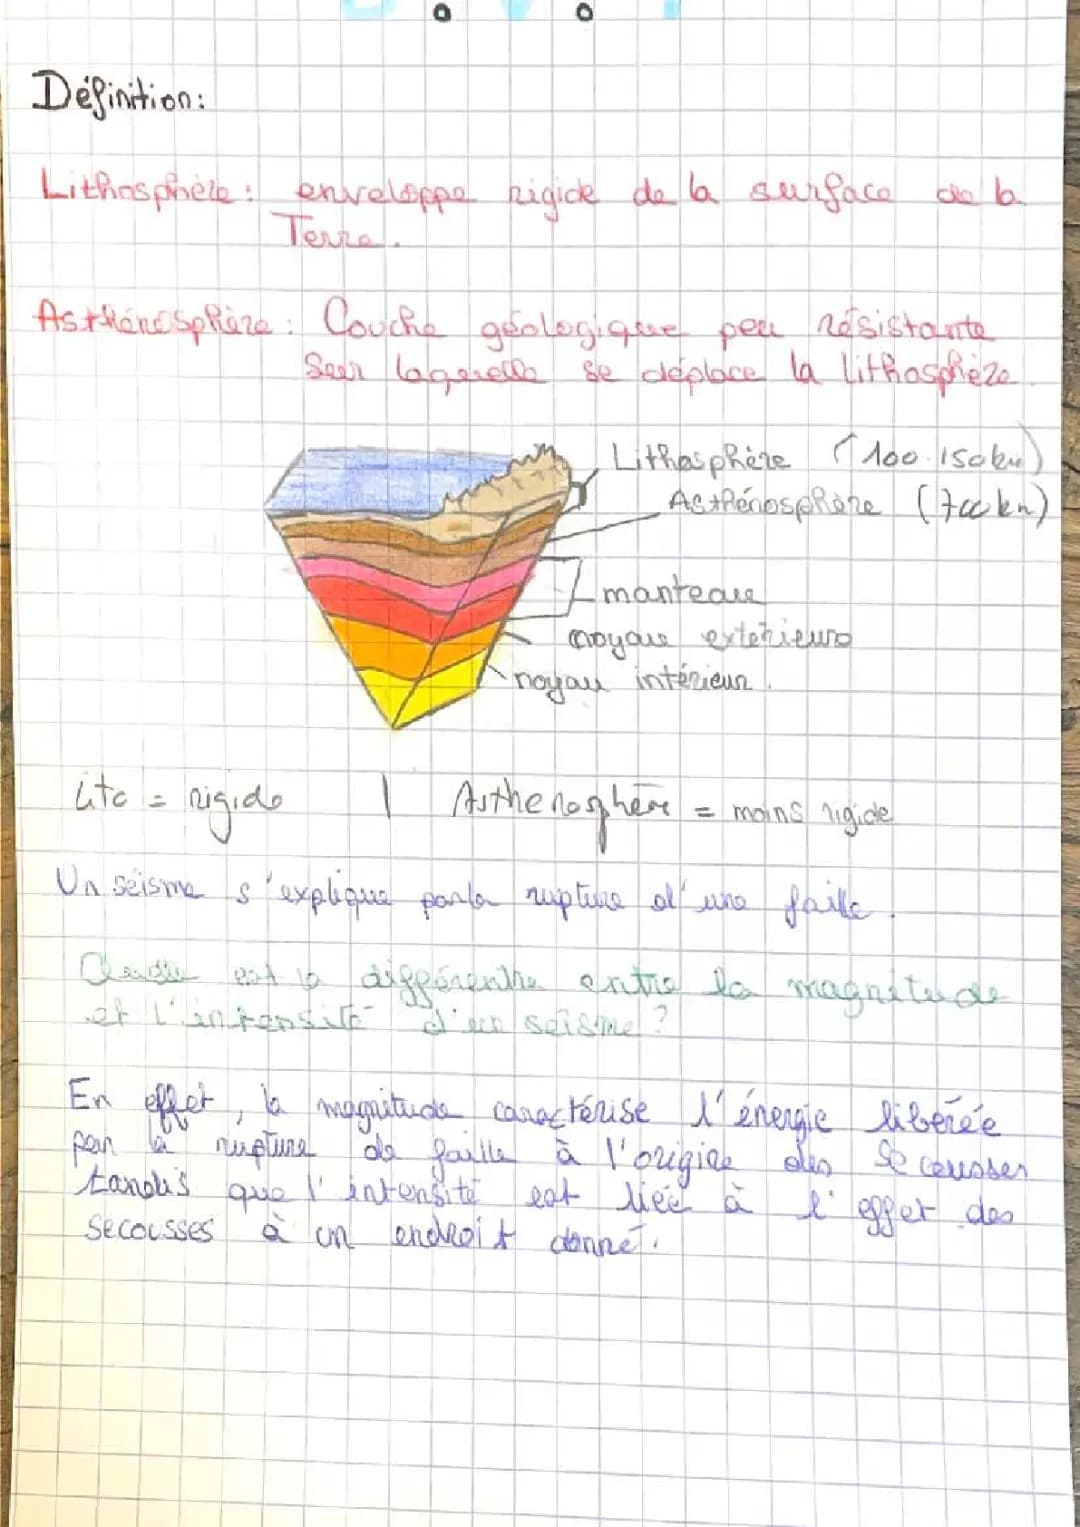 Définition:
Lithosphère : enveloppe rigide de la surface de la
Terre.
Asthénosphère : Couche géologique peu résistante
Sur laquelle se déplace la lithosphère.
Lithosphère (100-150km)
Asthénosphère (700km)
manteau
noyau extérieurs
noyau intérieur.
= rigide | Asthenosphère = moins rigide
Un séisme s'explique par la rupture d'une faille.
est la différenthe entre la magnitude
et l'intensité d'un séisme ?
En effet, la magnitude caractérise l'énergie libérée
par la rupture de faille à l'origine des secousses
tandis que l'intensité est liée à l'effet des
secousses à un endroit donné.